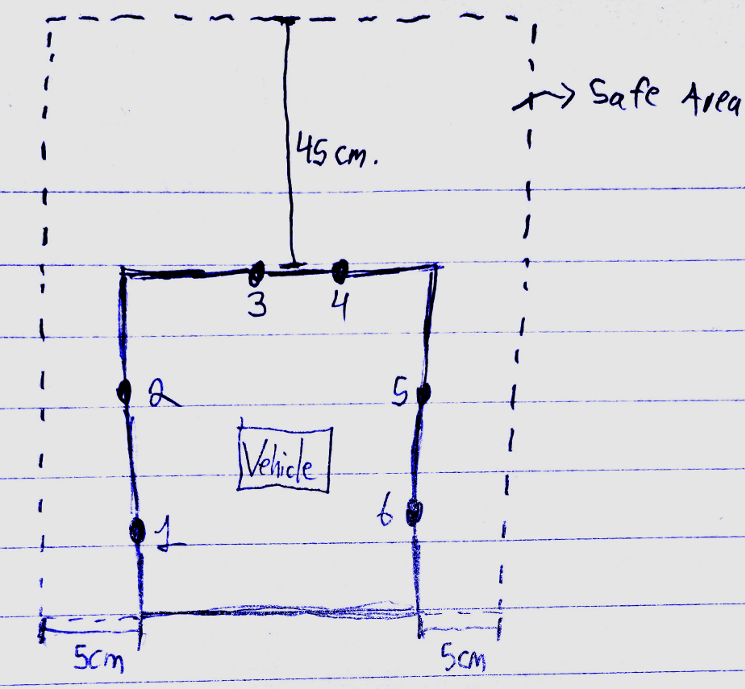 Safe Area
45cm.
3 4
2 5
Vehicle
6
1
5cm 5cm